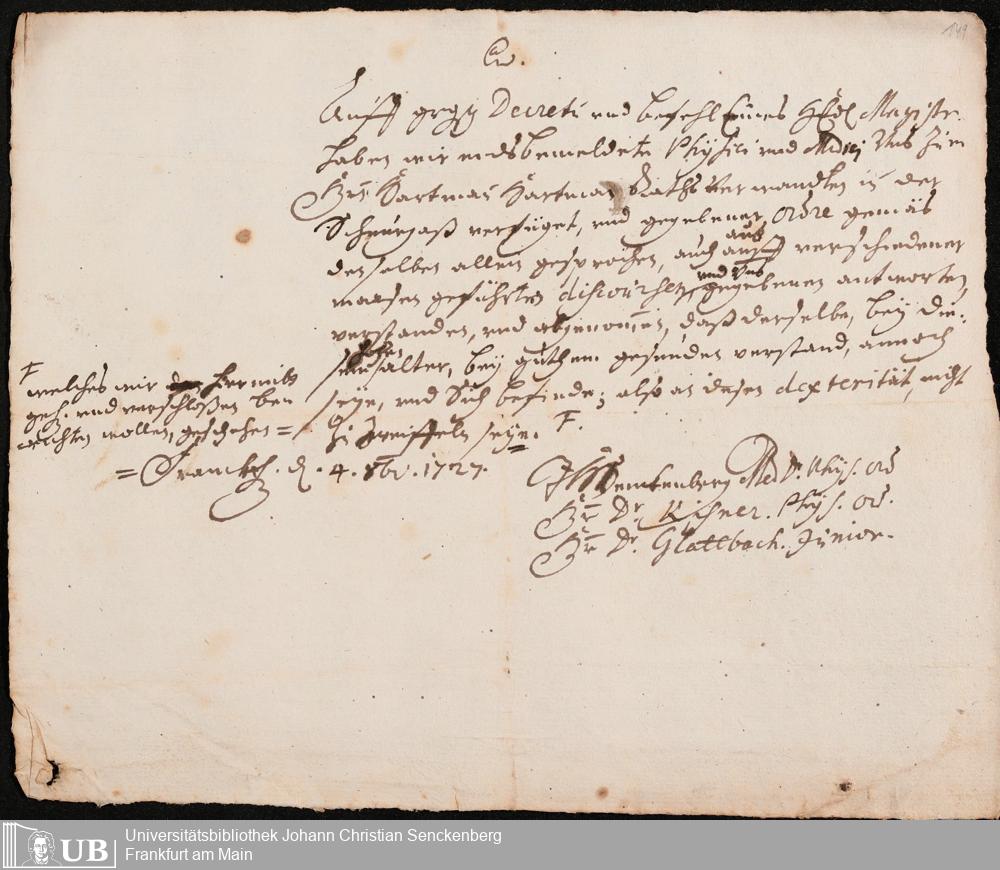 149
Auff grgst Decreti und befehl Eines HEdl Magistr.
haben wir endsbemeldete Physici und Medici Uns zum
Hrn Hartman Hartman Raths Verwandten in der
Schnurgaß verfüget, und gegebener ordre gemäs
denselben allein gesprochen, auch auff auß verschiedener
massen geführten discoursen, und Uns gegebenen antworten,
verstanden, und abgenommen, daß derselbe, bey die-
sem hohen alter, bey guthem gesunden verstand, annoch
seye, und Sich befinde; also an desen dexterität, nicht
zu zweiffeln seye. F.
F
welches wir hiermitt
geh. und verschloßen ben
richten wollen, geschehen =
= Franckf. d. 4. 9br. 1727.
Med. Dr. Phys. ord
Hr Dr. Kisner. Phys. or.
Hr Dr. Glattbach. Junior.
UB
Universitätsbibliothek Johann Christian Senckenberg
Frankfurt am Main